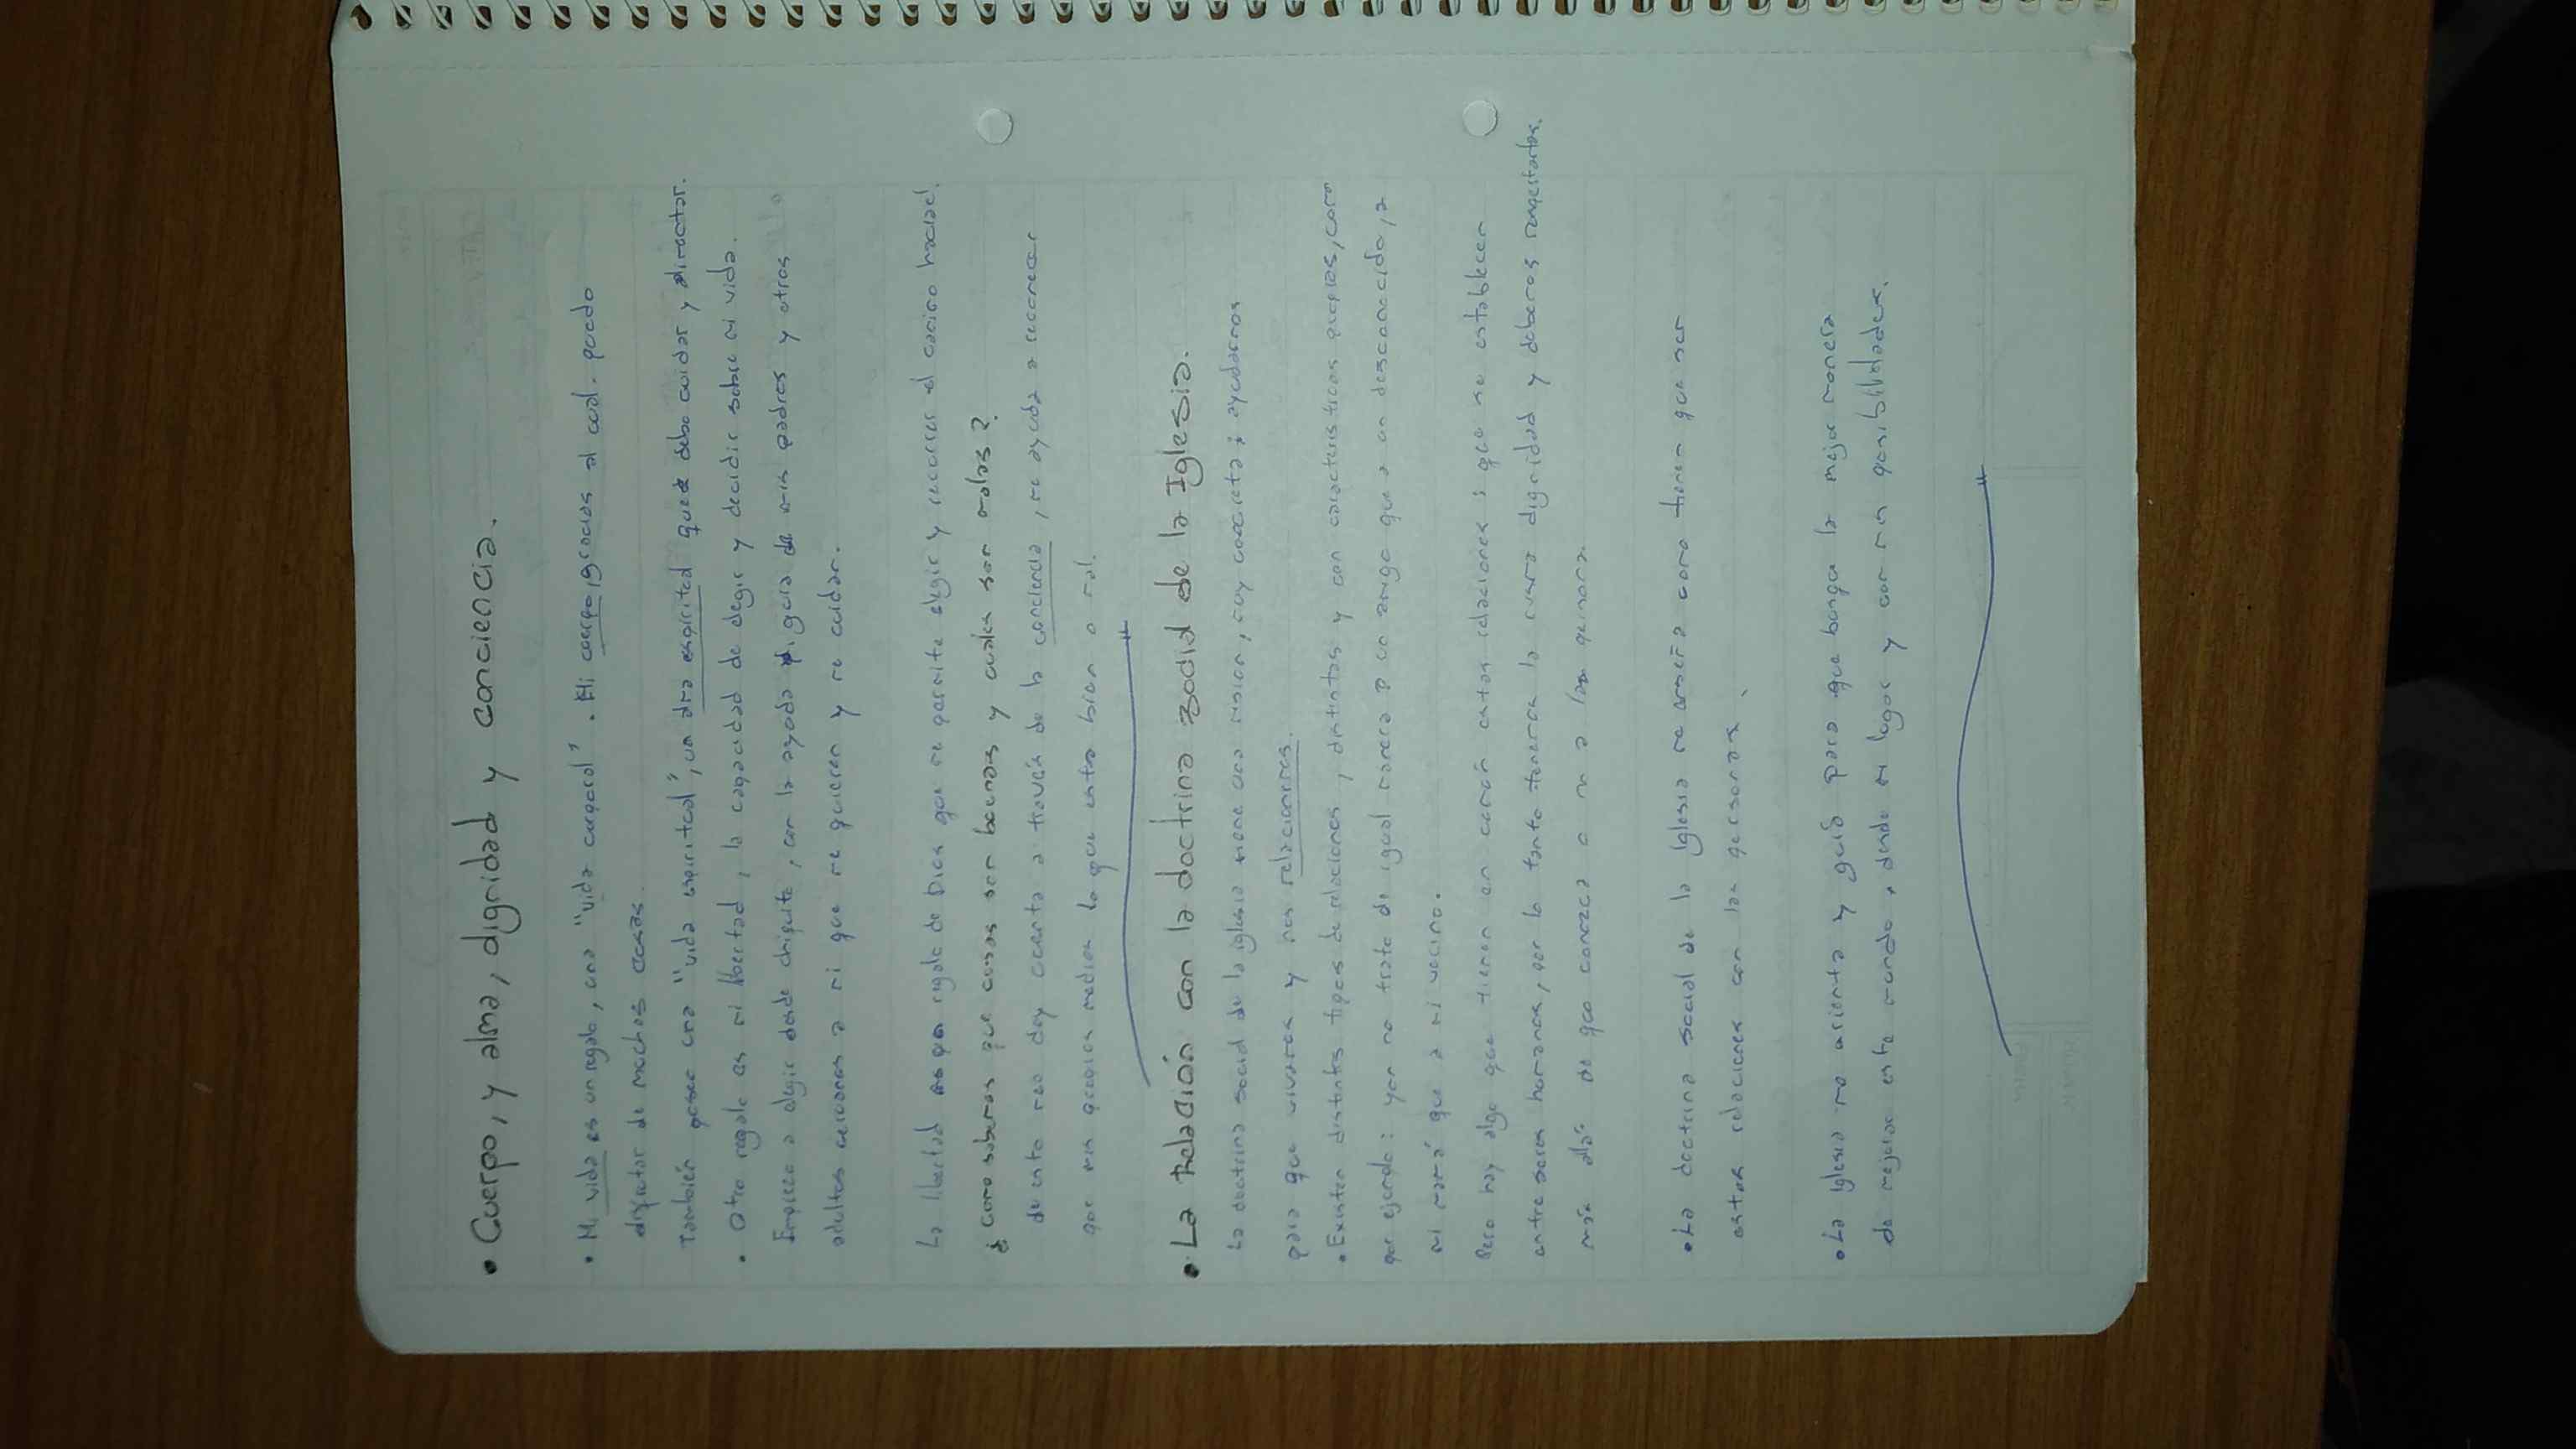 • Cuerpo, y alma, dignidad y conciencia.
• Mi vida es un regalo, una "vida corporal". Mi cuerpo, gracias al cual puedo
disfrutar de muchas cosas.
También poseo una "vida espiritual", un alma espiritual que debo cuidar y alimentar.
• Otro regalo es mi libertad, la capacidad de elegir y decidir sobre mi vida.
Empiezo a elegir desde chiquito, con la ayuda y guía de mis padres y otros
adultos cercanos a mi que me quieren y me cuidan.
La libertad es un regalo de Dios que me permite elegir y recorrer el camino hacia él.
¿Como sabemos que cosas son buenas y cuales son malas?
de esto me doy cuenta a través de la conciencia, me ayuda a reconocer
por mis propios medios lo que esta bien o mal.
• La Relación con la doctrina social de la Iglesia.
La doctrina social de la iglesia tiene una mision, muy concreta: ayudarnos
para que vivamos y nos relacionemos.
• Existen distintos tipos de relaciones, distintas y con caracteristicas propias, como
por ejemplo: yo no trato de igual manera a un amigo que a un desconocido, a
mi mamá que a mi vecino.
Pero hay algo que tienen en común estas relaciones: que se establecen
entre seres humanos, por lo tanto tenemos la misma dignidad y debemos respetarlos.
más allá de que conozca o no a las personas.
• La doctrina social de la Iglesia me enseña como tienen que ser
estas relaciones con las personas.
• La Iglesia me orienta y guía para que busque la mejor manera
de mejorar este mundo, desde mi lugar y con mis posibilidades.